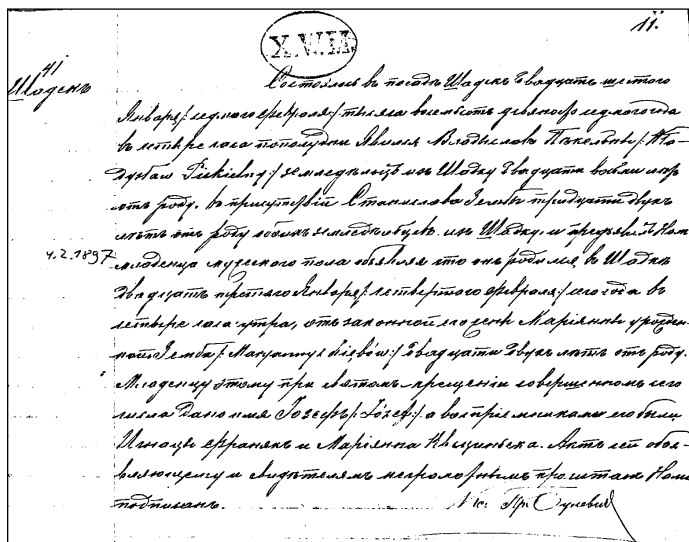 11.
X.VIII
41
Шадекъ
Состоялось въ посадѣ Шадекъ двадцать шестого
Января /:седьмого февраля:/ тысяча восемьсотъ девяносто седьмого года
въ четыре часа пополудни. Явился Владыславъ Пѣкельны /:Wła-
dysław Piekielny:/ земледѣлецъ изъ Шадку двадцати восьми лѣтъ
отъ роду, въ присутствіи Станислава Зембы тридцати двухъ
лѣтъ отъ роду обоихъ земледѣльцевъ изъ Шадку, и предъявилъ Намъ
4.2.1897
младенца мужескаго пола объявляя что онъ родился въ Шадкѣ
двадцать третьяго Января /:четвертого февраля:/ сего года въ
четыре часа утра, отъ законной его жены Маріянны урожден-
ной Земба /:Maryanny z :/ двадцати двухъ лѣтъ отъ роду.
Младенцу этому при святомъ крещеніи совершенномъ сего
числа дано имя Іозефъ /:Józef:/ а воспріемниками его были
Игнацы Франякъ и Маріянна. Актъ сей объя-
вляющему и свидѣтелямъ неграмотнымъ прочитанъ Нами
подписанъ.